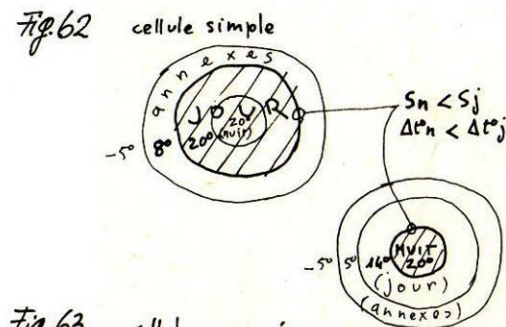 Fig.62 cellule simple
annexes
JOUR
20°
(nuit)
-5° 8° 20°
Sn < Sj
Δt°n < Δt°j
NUIT
-5° 5° 14° 20°
(jour)
(annexes)
Fig.63